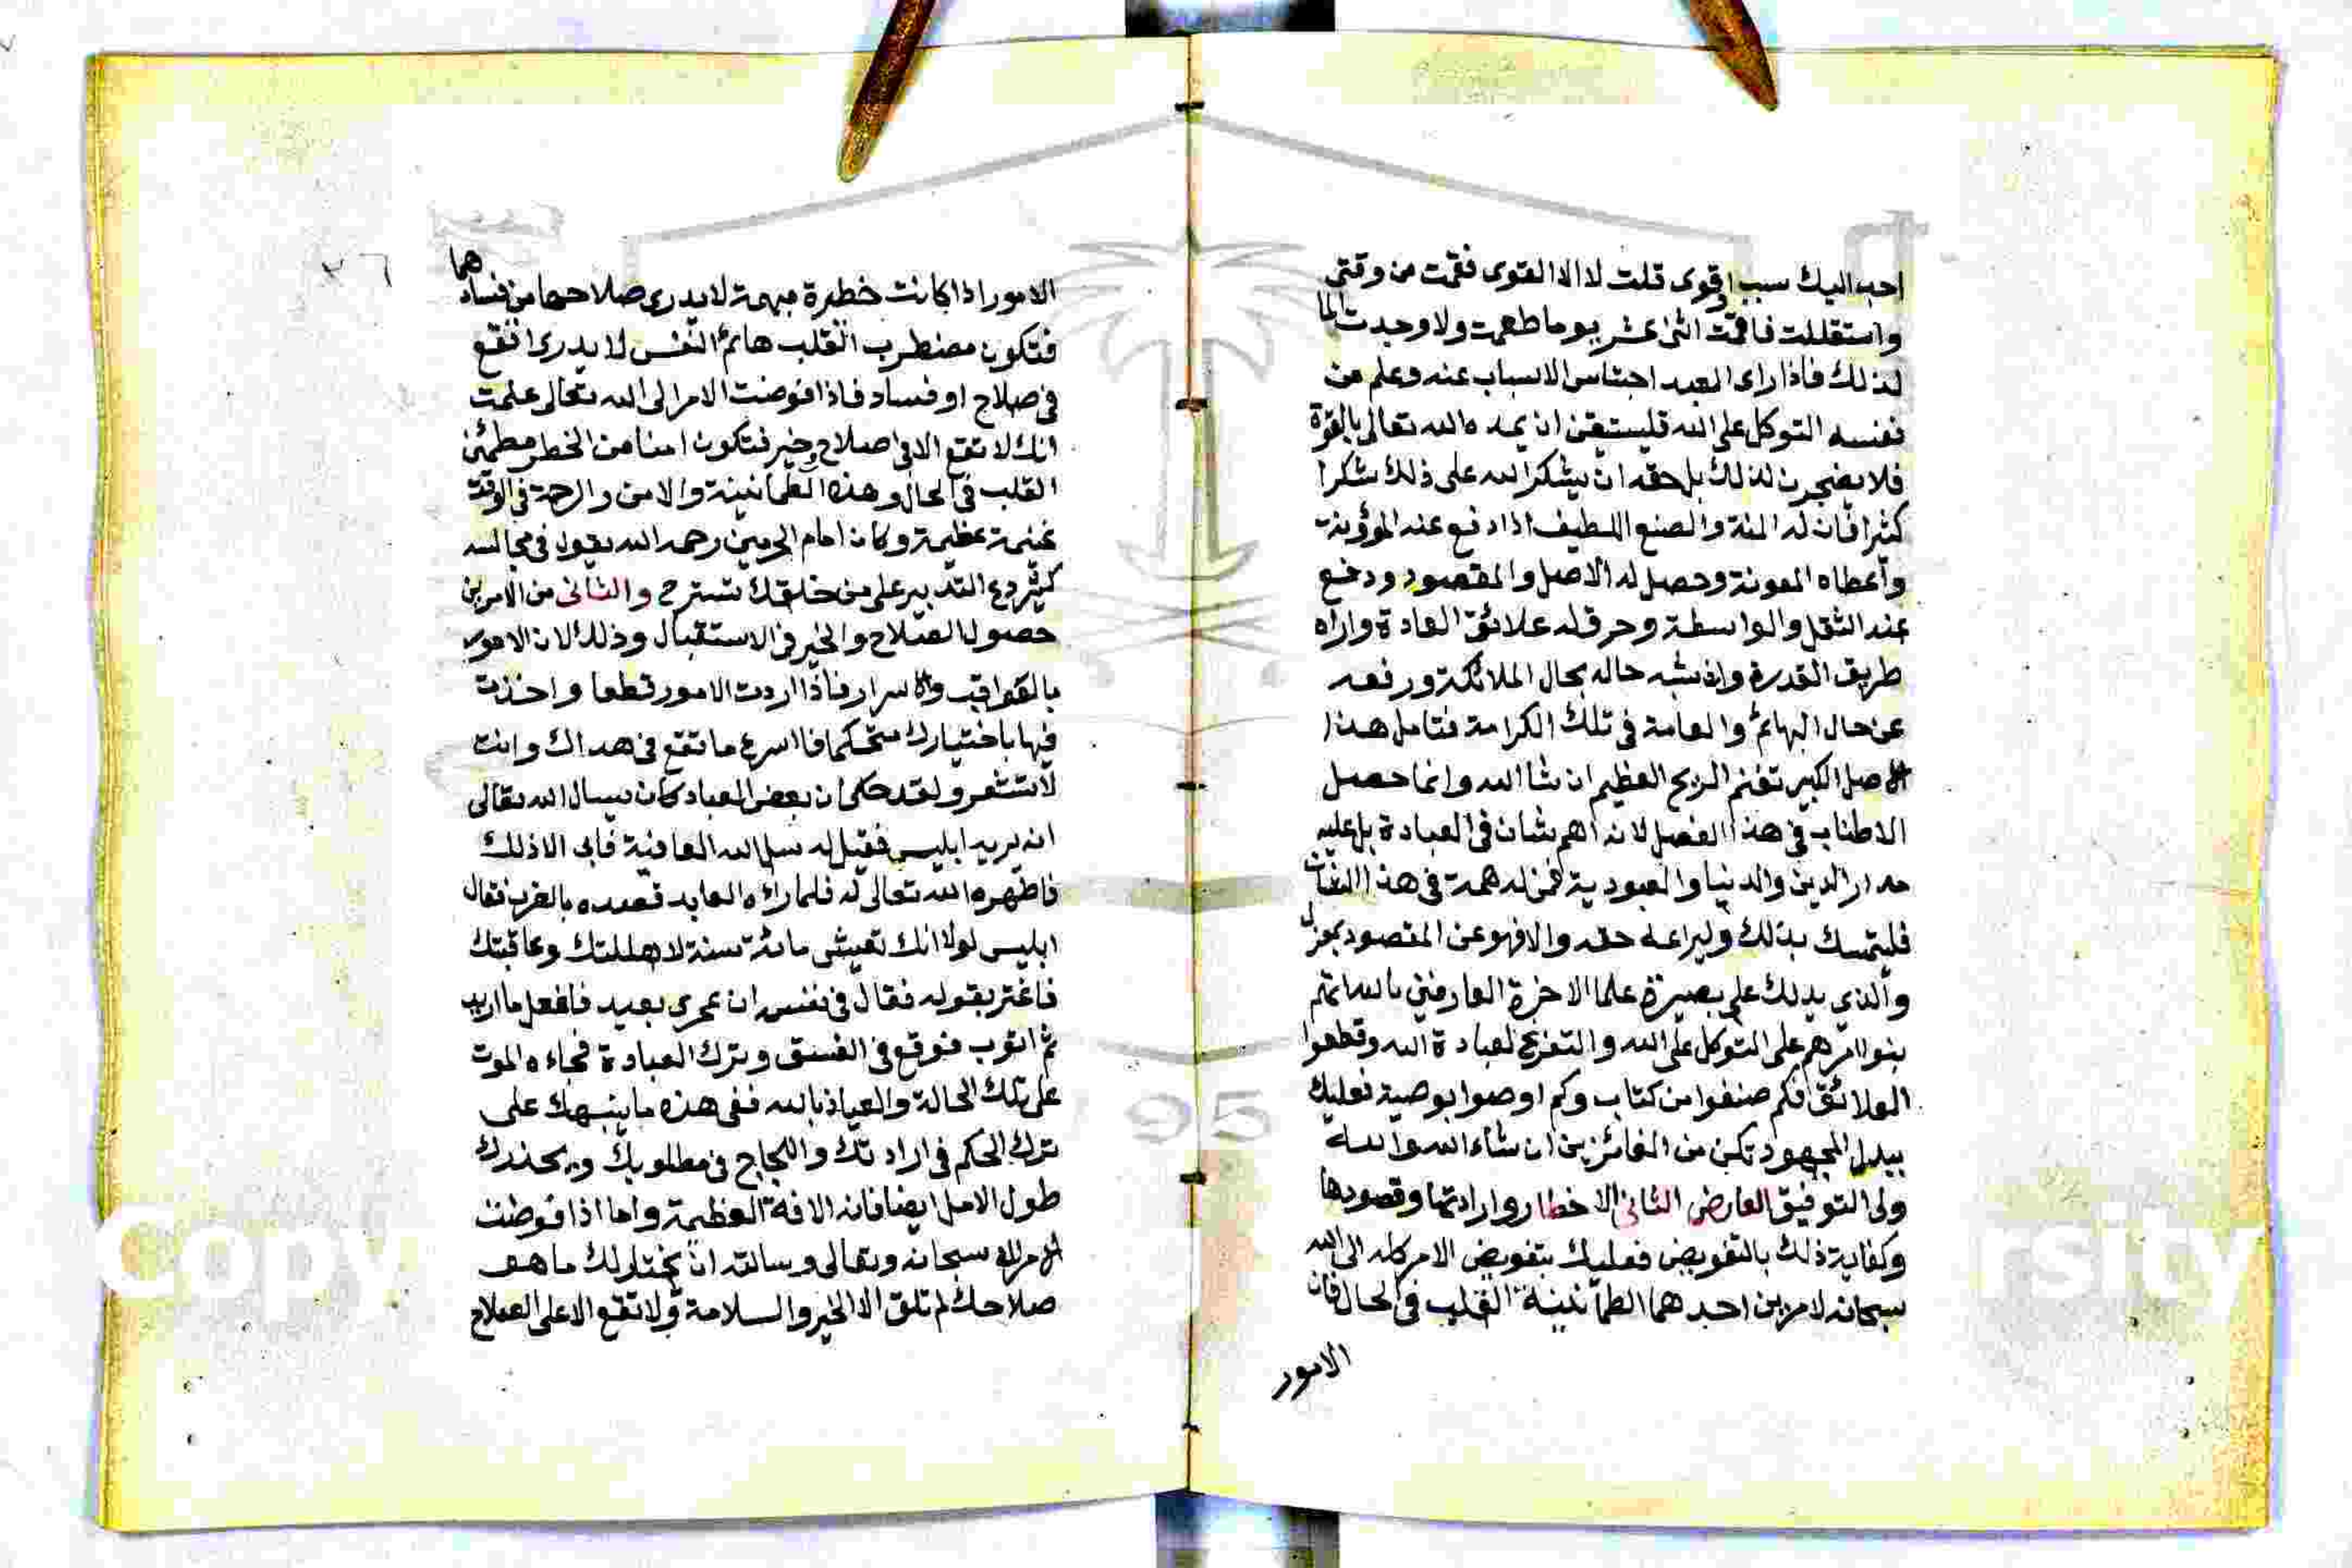 احب اليك سبب او قوى قلت لا الا القوى فقمت من وقتى
واستقللت فاقمت اثنى عشر يوما ما طعمت ولا وجدت الما
لذلك فاذا راى العبد احتباس الاسباب عنه وعلم من
نفسه التوكل على الله فليستيقن ان يمده الله تعالى بالقوة
فلا يضجرن لذلك بل حقه ان يشكر الله على ذلك شكرا
كثيرا فان له المنة والصنع اللطيف اذا دفع عنه المؤونة
واعطاه المعونة وحصل له الاصل والمقصود ودفع
عنه الثقل والواسطة وحرق له علائق العادة واراه
طريق القدرة واذ شبه حاله بحال الملائكة ورفعه
عن حال البهائم والعامة فى تلك الكرامة فتامل هذا
الاصل الكبير تغنم الربح العظيم ان شا الله وانما حصل
الاطناب فى هذا الفصل لانه اهم شان فى العبادة بل عليه
مدار الدين والدنيا والعبودية فمن له همة فى هذا الشان
فليتمسك بذلك وليراعه حقه والا فهو عن المقصود بمعزل
والذي يدلك على بصيرة علما الاخرة العارفين بالله انهم
بنوا امرهم على التوكل على الله والتفرغ لعبادة الله وقطعوا
العلائق فكم صنفوا من كتاب وكم اوصوا بوصية فعليك
ببذل المجهود تكن من الفائزين ان شاء الله والله
ولى التوفيق العارض الثانى الاخطار وارادتها وقصودها
وكفاية ذلك بالتفويض فعليك بتفويض الامر كله الى الله
سبحانه لامرين احدهما الطمأنينة القلب فى الحال فان
الامور
٣٦
الامور اذا كانت خطيرة مبهمة لا يدرى صلاحها من فسادهما
فتكون مضطرب القلب هائم النفس لا يدرى اتقع
فى صلاح او فساد فاذا فوضت الامر الى الله تعالى علمت
انك لا تقع الا فى صلاح وخير فتكون امنا من الخطر مطمئن
القلب فى الحال وهذه الطمانينة والامن والرحة فى الوقت
غنيمة عظيمة وكان امام الحرمين رحمه الله يقول فى مجالسه
كثير دع التدبير على من خلقك تسترح والثانى من الامرين
حصول الصلاح والخير فى الاستقبال وذلك لان الامور
بالعواقب والاسرار فاذا اردت الامور قطعا واخذت
فيها باختيارك متحكما فما اسرع ما تقع فى هداك وانت
لا تشعر ولقد حكى ان بعض العباد كان يسال الله تعالى
ان يريه ابليس فقيل له سل الله العافية فابى الا ذلك
فاظهره الله تعالى له فلما راه العابد قصده بالضرب فقال
ابليس لولا انك تعيش مائة سنة لاهللتك وعاقبتك
فاغتر بقوله فقال فى نفسه ان عمرى بعيد فافعل ما اريد
ثم اتوب فوقع فى الفسق وترك العبادة فجاءه الموت
على تلك الحالة والعياذ بالله ففى هذه ما ينبهك على
ترك الحكم فى ارادتك واللجاج فى مطلوبك ويحذرك
طول الامل ايضا فانه الافة العظيمة واما اذا فوضت
الامر لله سبحانه وتعالى وسالته ان يختار لك ما هو
صلاحك لم تلق الا الخير والسلامة ولا تقع الا على الصلاح